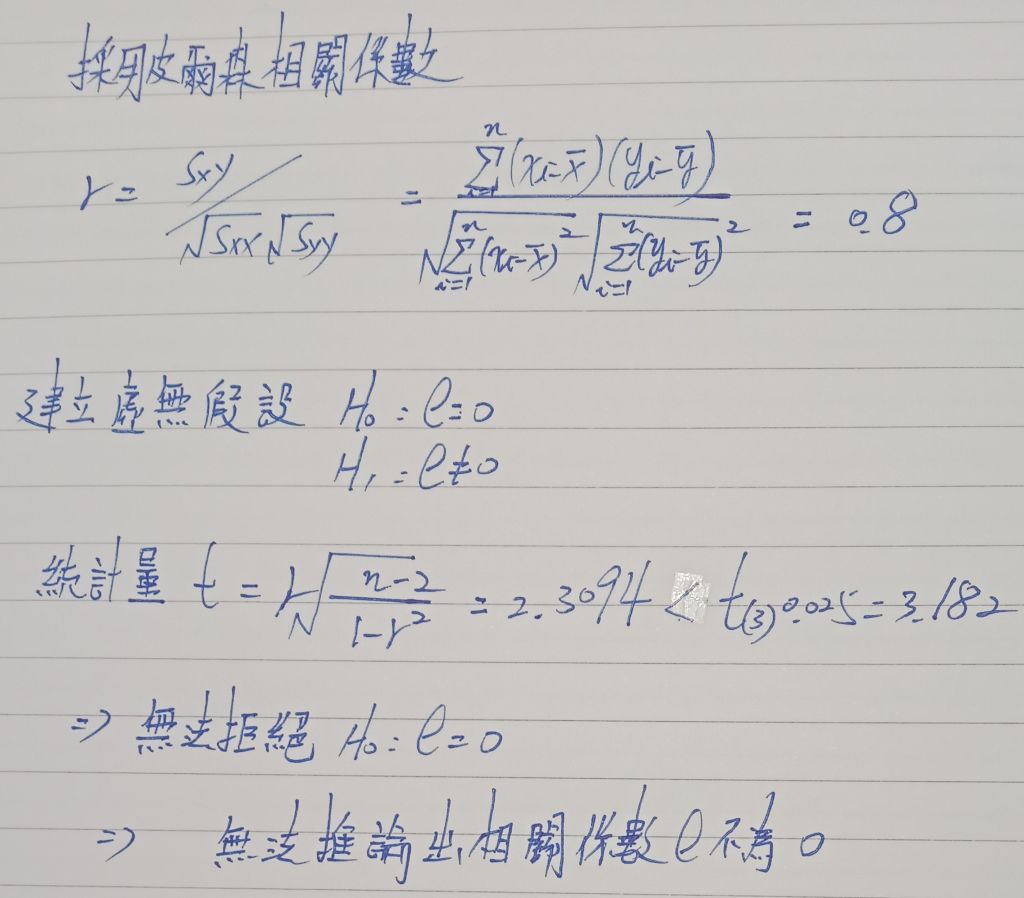 採用皮爾森相關係數
r = Sxy / √Sxx √Syy = ∑(i=1→n)(xi-x̄)(yi-ȳ) / √∑(i=1→n)(xi-x̄)² √∑(i=1→n)(yi-ȳ)² = 0.8
建立虛無假設 H₀ : ρ=0
H₁ : ρ≠0
統計量 t = r√((n-2)/(1-r²)) = 2.3094 < t(3)0.025 = 3.182
⇒ 無法拒絕 H₀ : ρ=0
⇒ 無法推論出相關係數ρ不為0